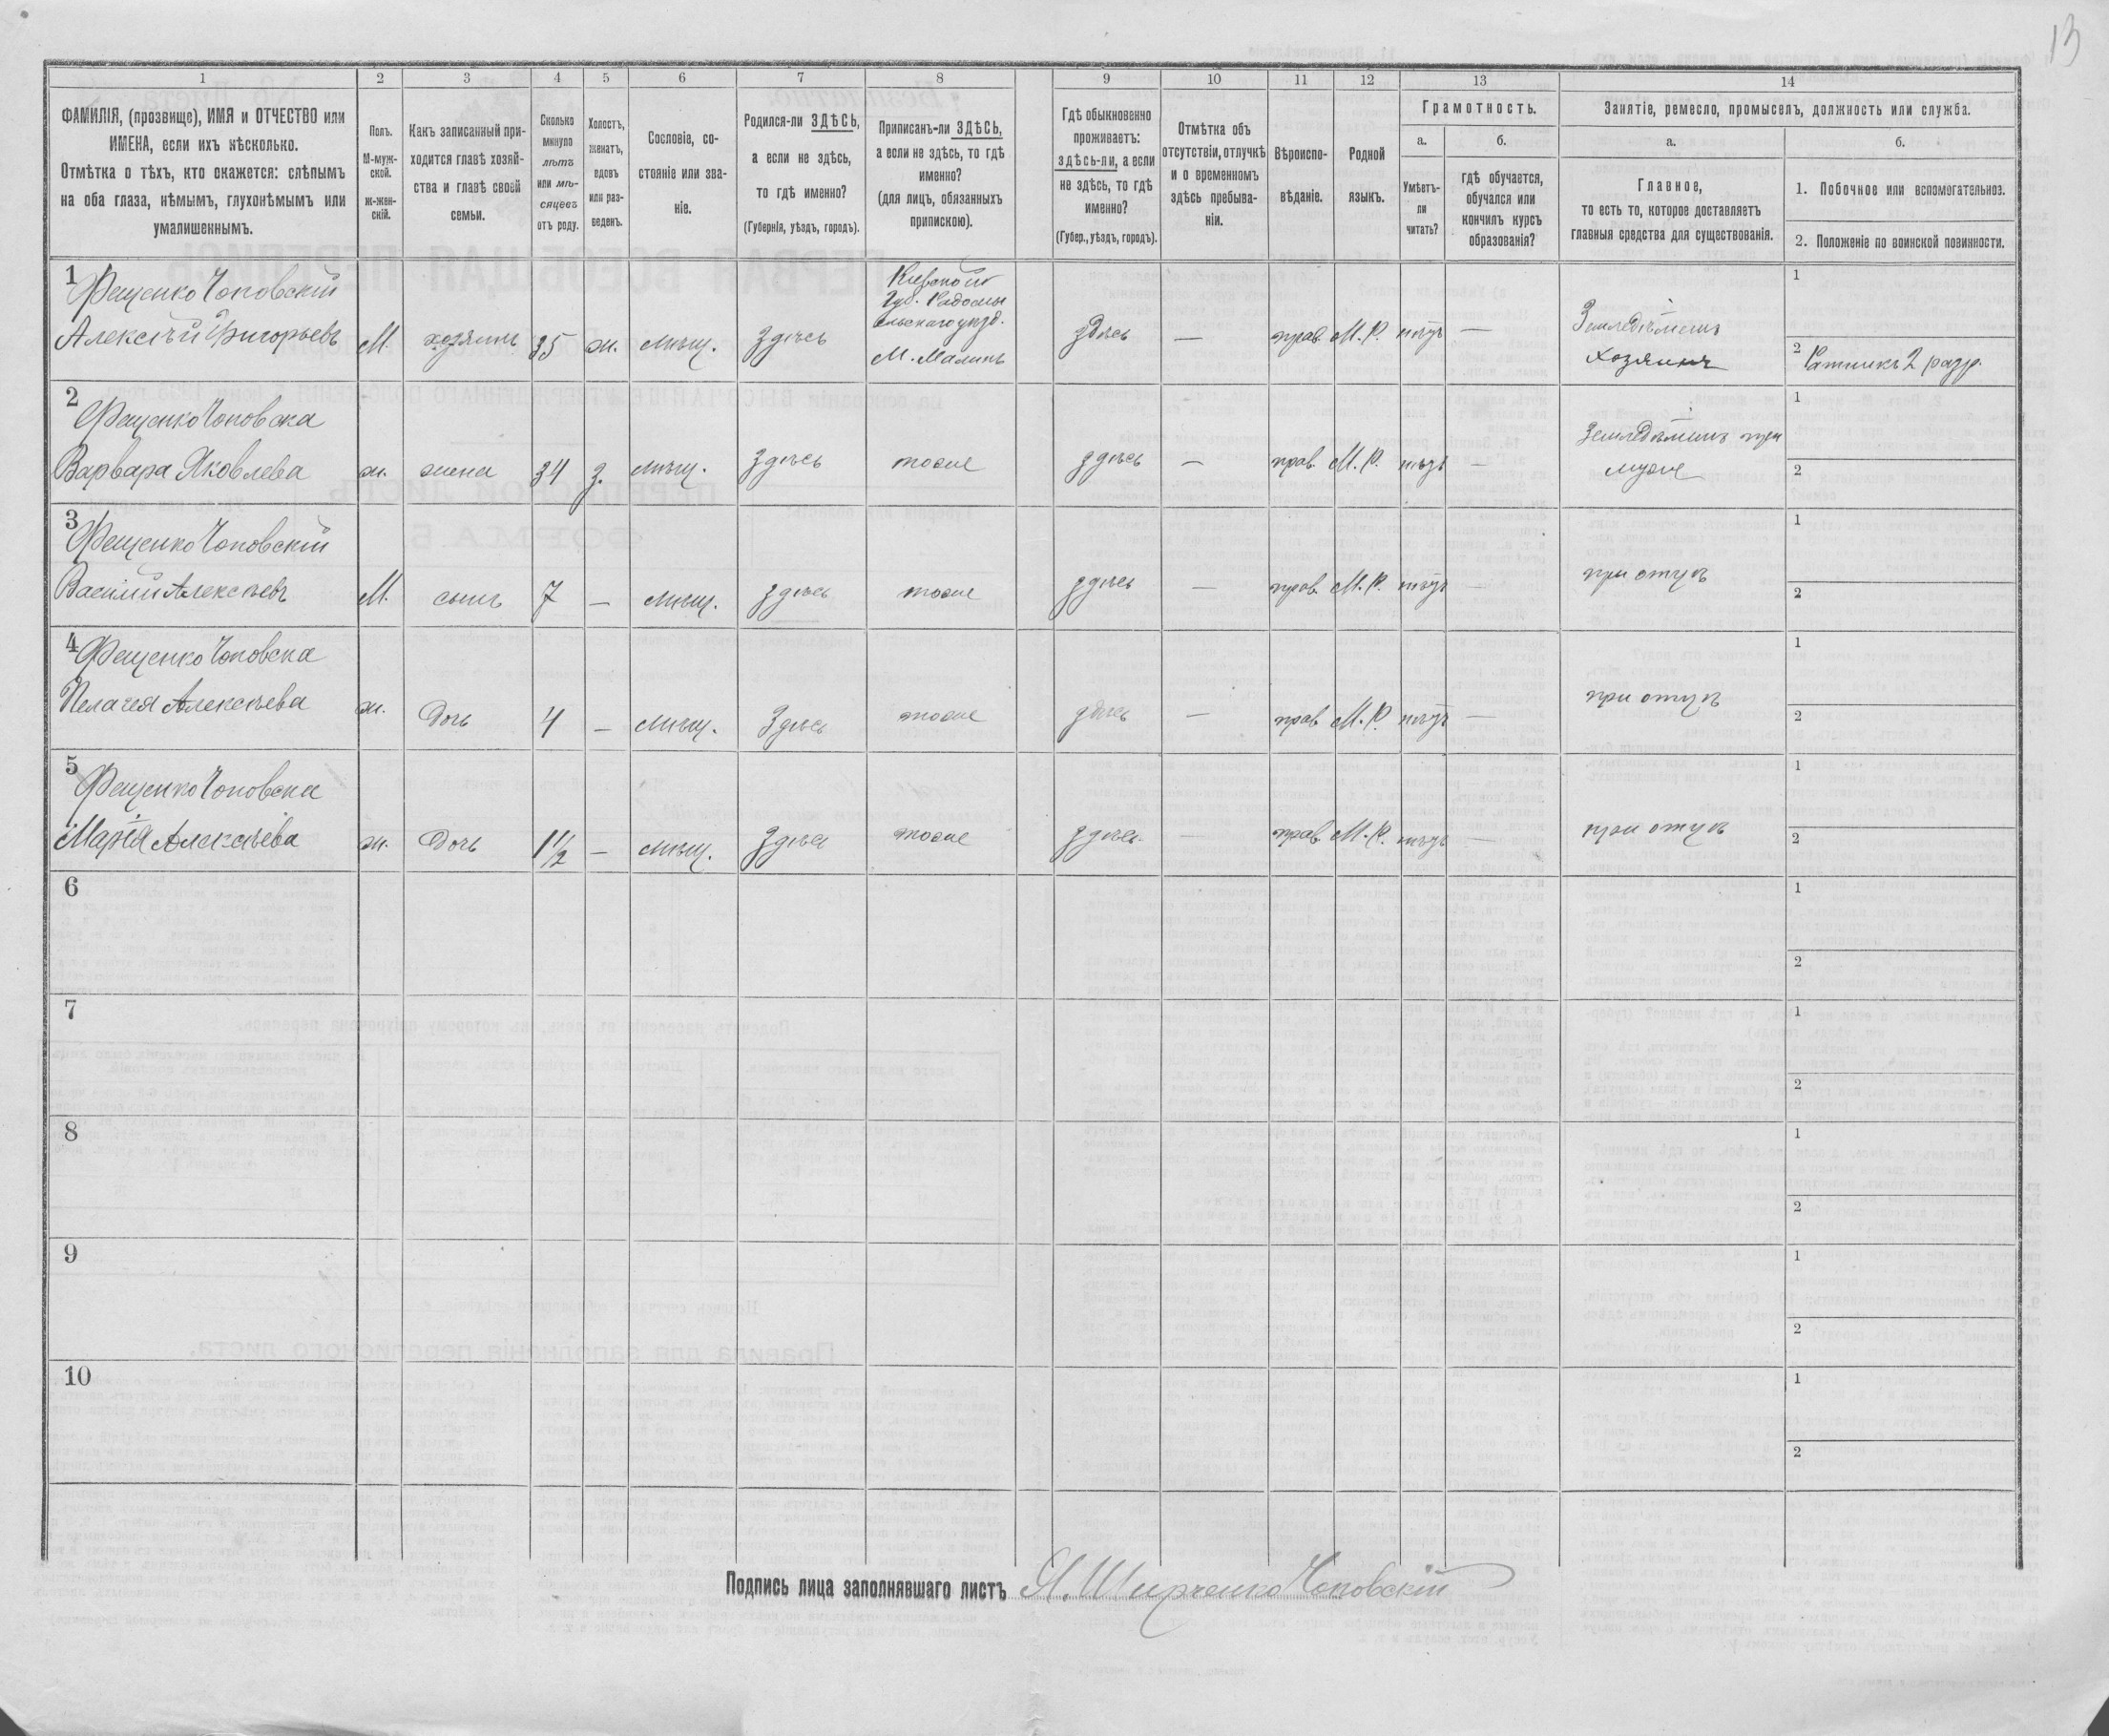 13
1 2 3 4 5 6 7 8 9 10 11 12 13 14
ФАМИЛІЯ, (прозвище), ИМЯ и ОТЧЕСТВО или
ИМЕНА, если ихъ нѣсколько.
Отмѣтка о тѣхъ, кто окажется: слѣпымъ
на оба глаза, нѣмымъ, глухонѣмымъ или
умалишеннымъ.
Полъ.
М-муж-
ской.
ж-жен-
скій.
Какъ записанный при-
ходится главѣ хозяй-
ства и главѣ своей
семьи.
Сколько
минуло
лѣтъ
или мѣ-
сяцевъ
отъ роду.
Холостъ,
женатъ,
вдовъ
или раз-
веденъ.
Сословіе, со-
стояніе или зва-
ніе.
Родился-ли ЗДѢСЬ,
а если не здѣсь,
то гдѣ именно?
(Губернія, уѣздъ, городъ).
Приписанъ-ли ЗДѢСЬ,
а если не здѣсь, то гдѣ
именно?
(для лицъ, обязанныхъ
припискою).
Гдѣ обыкновенно
проживаетъ:
здѣсь-ли, а если
не здѣсь, то гдѣ
именно?
(Губер., уѣздъ, городъ).
Отмѣтка объ
отсутствіи, отлучкѣ
и о временномъ
здѣсь пребыва-
ніи.
Вѣроиспо-
вѣданіе.
Родной
языкъ.
Грамотность.
а.
Умѣетъ-
ли
читать?
б.
гдѣ обучается,
обучался или
кончилъ курсъ
образованія?
Занятіе, ремесло, промыселъ, должность или служба.
а.
Главное,
то есть то, которое доставляетъ
главныя средства для существованія.
б.
1. Побочное или вспомогательное.
2. Положеніе по воинской повинности.
1
Фещенко Чоповскій
Алексѣй Григорьевъ М. хозяинъ 35 ж. мѣщ. здѣсь
Кіевской
Губ. Радомы
сльскаго уѣзд.
М. Малинъ
здѣсь — прав. М. Р. нѣтъ —
Земледѣлецъ
Хозяинъ
1
2 Ратникъ 2 разр.
2
Фещенко Чоповска
Варвара Яковлева ж. жена 34 з. мѣщ. здѣсь тоже здѣсь — прав. М. Р. нѣтъ —
Земледѣлецъ при
мужѣ
1
2
3
Фещенко Чоповскій
Василій Алексѣевъ М. сынъ 7 — мѣщ. здѣсь тоже здѣсь — прав. М. Р. нѣтъ — при отцѣ
1
2
4
Фещенко Чоповска
Пелагея Алексѣева ж. Дочь 4 — мѣщ. здѣсь тоже здѣсь — прав. М. Р. нѣтъ — при отцѣ
1
2
5
Фещенко Чоповска
Марія Алексѣева ж. Дочь 1 1/2 — мѣщ. здѣсь тоже здѣсь — прав. М. Р. нѣтъ — при отцѣ
1
2
6
1
2
7
1
2
8
1
2
9
1
2
10
1
2
Подпись лица заполнявшаго листъ Чоповскій